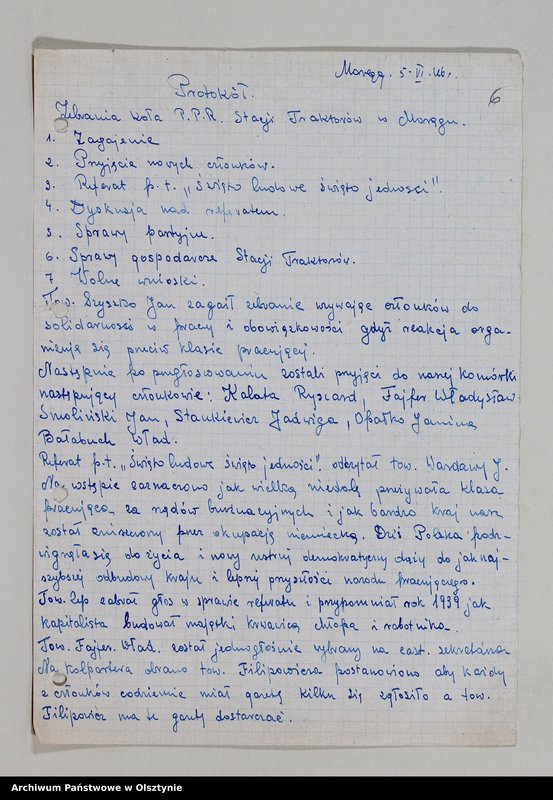 Morąg. 5. VI. 46r.
6
Protokół.
Zebrania koła P.P.R. Stacji Traktorów w Morągu.
1. Zagajenie
2. Pryjęcie nowych członków.
3. Referat p.t. „Święto ludowe święto jedności".
4. Dyskusja nad referatem.
5. Sprawy partyjne.
6. Sprawy gospodarcze Stacji Traktorów.
7 Wolne wnioski.
Tow. Szyszko Jan zagaił zebranie wzywając członków do
solidarności w pracy i obowiązkowości gdyż reakcja orga-
nizują się przeciw klasie pracującej.
Następnie po przegłosowaniu zostali pryjęci do naszej komórki
następujący członkowie: Kalata Ryszard, Fajfer Władysław
Smoliński Jan, Stankiewicz Jadwiga, Opałko Janina,
Bałabuch Wład.
Referat p.t. „Święto ludowe święto jedności". odczytał tow. J.
Na wstępie zaznaczono jak wielką niedolę przeżywała klasa
pracująca za rządów burżuacyjnych i jak bardzo kraj nasz
został zniszczony przez okupację niemiecką. Dziś Polska podz-
wignęła się do życia i nowy ustrój demokratyczny dąży do jak naj-
szybszej odbudowy kraju i lepszej przyszłości narodu pracującego.
Tow. zabrał głos w sprawie referatu i przypomniał rok 1939 jak
kapitalista budował majątki krwawicą chłopa i robotnika.
Tow. Fajfer. Wład. został jednogłośnie wybrany na zast. sekretarza
Na kolportera obrano tow. Filipowicza postanowiono aby każdy
z członków codziennie miał gazetę kilku się zgłosiło a tow.
Filipowicz ma te gazety dostarczać.
Archiwum Państwowe w Olsztynie